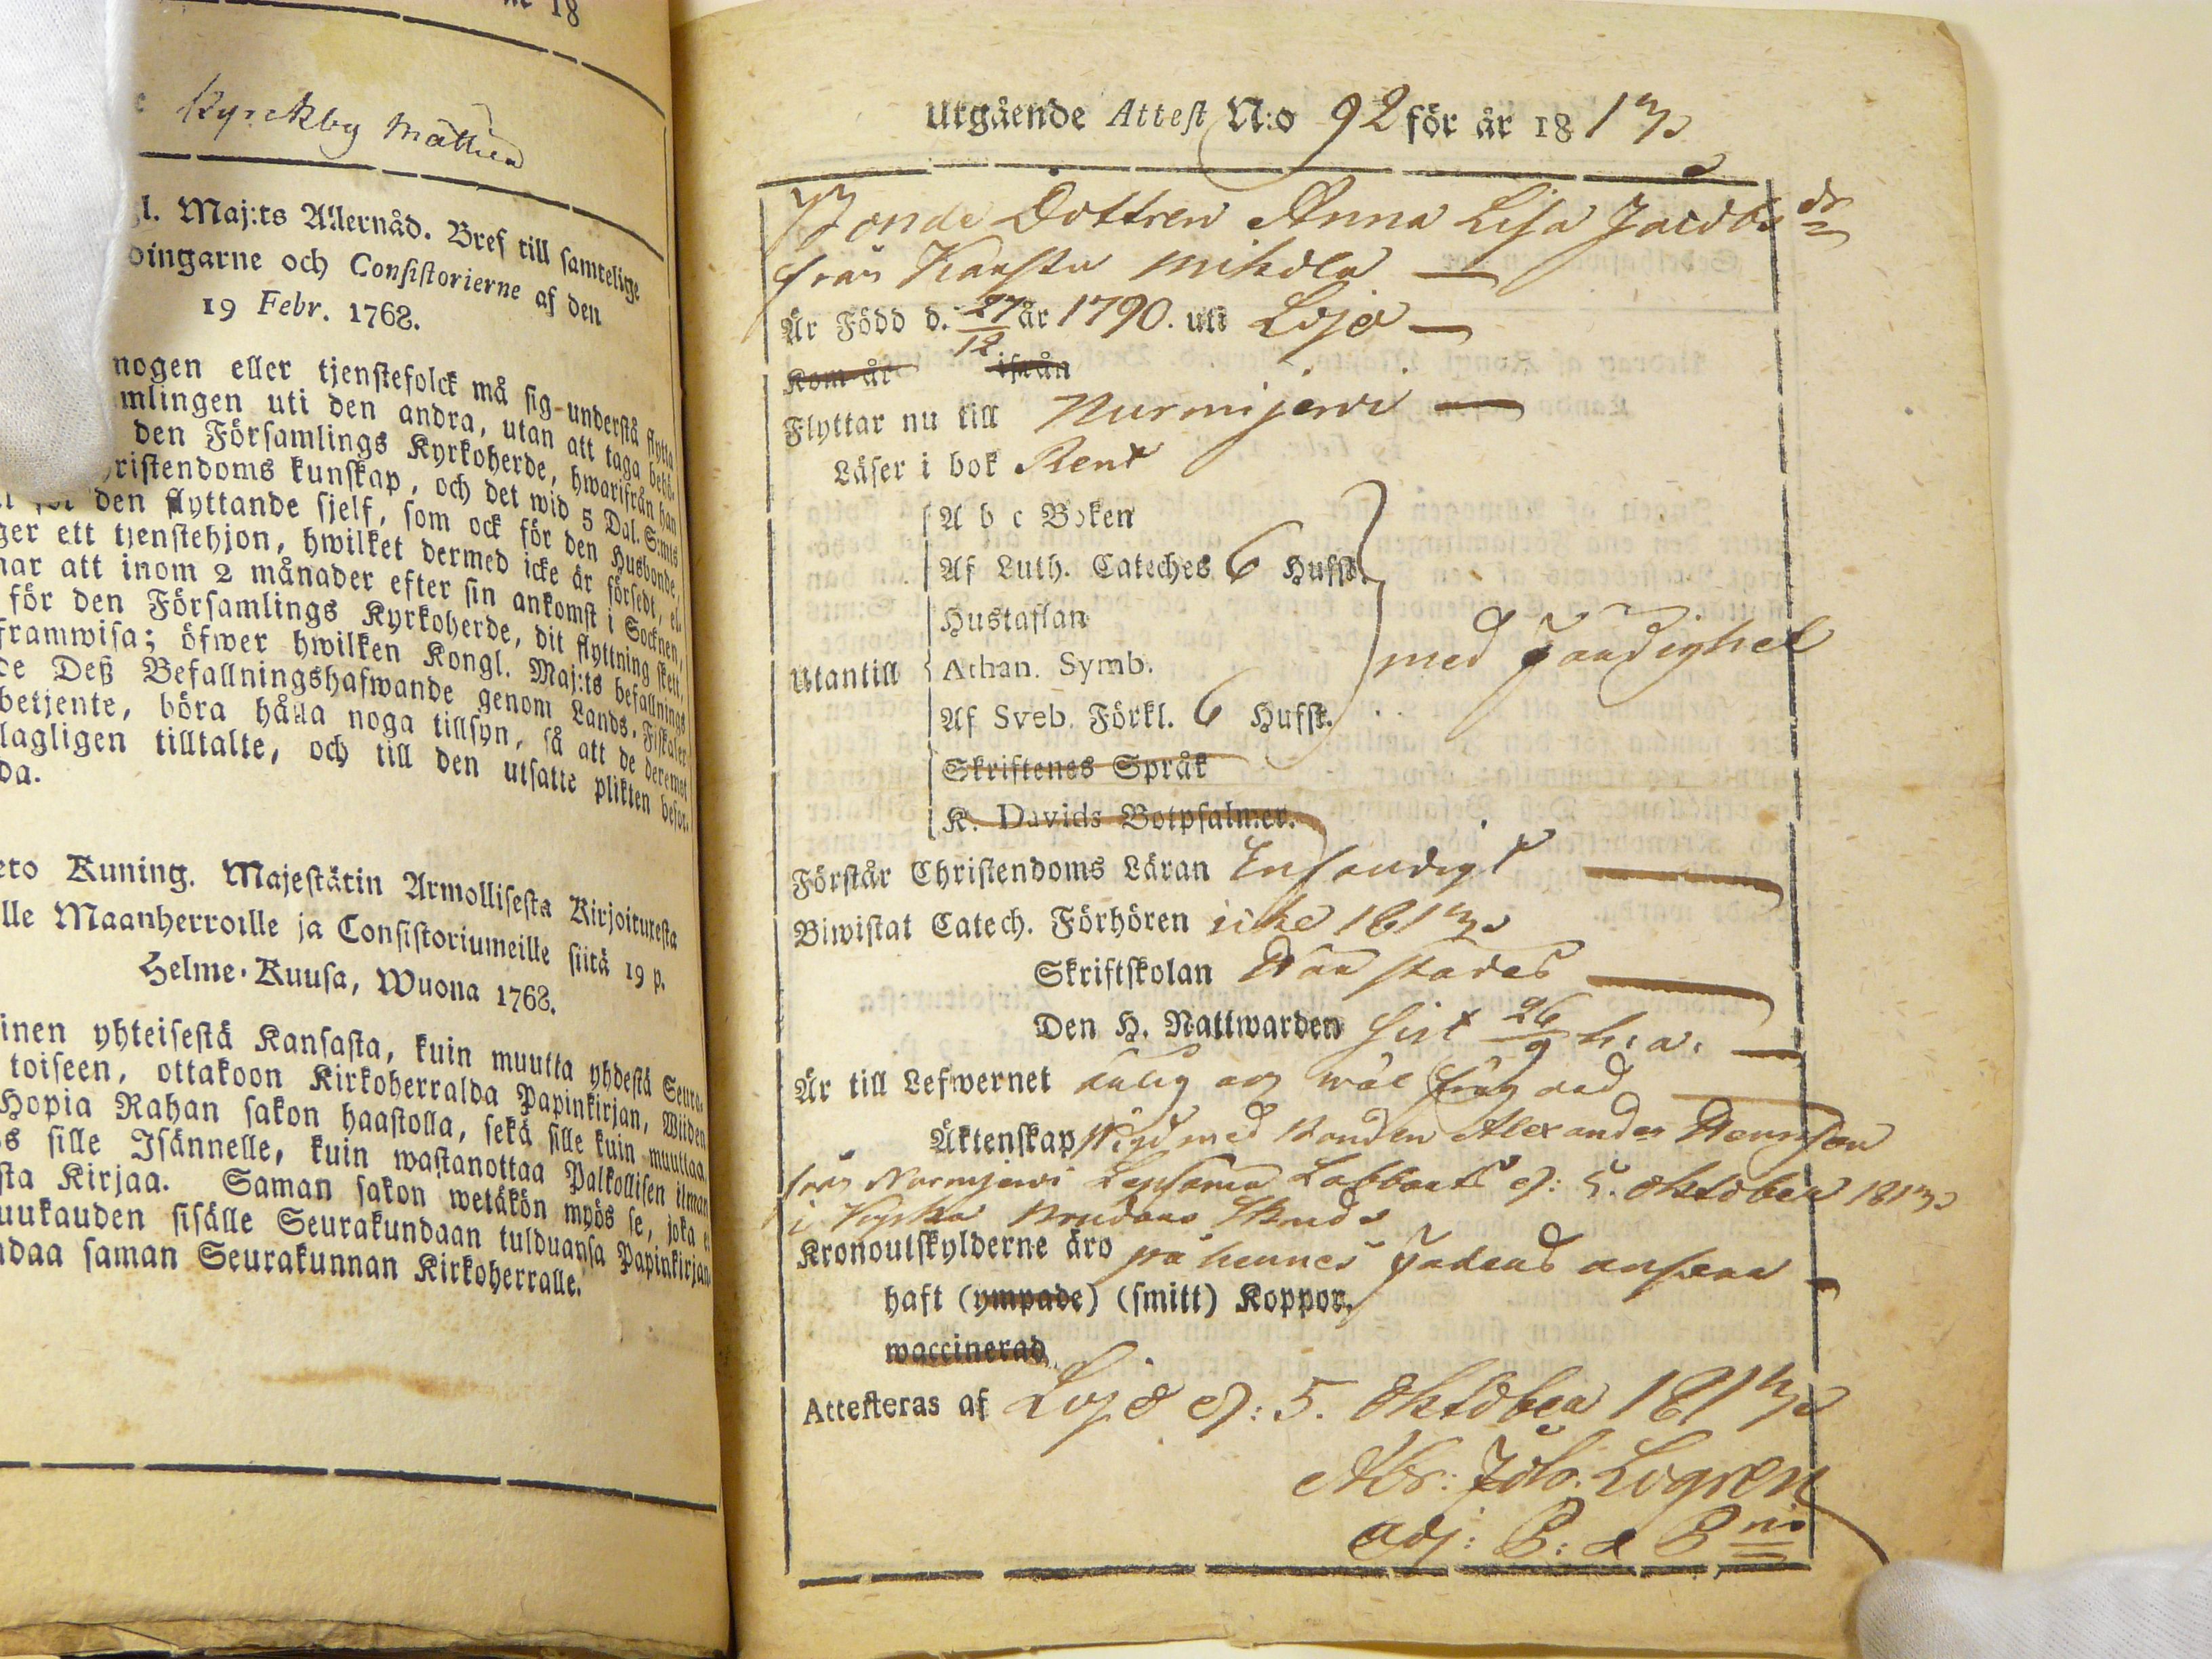 ne 18
Kyrckby Mattila
gl. Maj:ts Allernåd. Bref till samtelige
dingarne och Consistorierne af den
19 Febr. 1768.
mogen eller tjenstefolck må sig understå flytta
mlingen uti den andra, utan att taga behö-
den Församlings Kyrkoherde, hwarifrån han
ristendoms kunskap, och det wid 5 Dal. S:mts
den flyttande sjelf, som ock för den Husbonde,
ger ett tjenstehjon, hwilket dermed icke är försedt, el-
mar att inom 2 månader efter sin ankomst i Socknen,
för den Församlings Kyrkoherde, dit flyttning skett,
framwisa; öfwer hwilken Kongl. Maj:ts befallnings
Deß Befallningshafwande genom Lands-Fiskaler
betjente, böra hålla noga tillsyn, så att de deremot
lagligen tilltalte, och till den utsatte plikten befor-
da.
eto Kuning. Majestätin Armollisesta Kirjoituxesta
lle Maanherroille ja Consistoriumeille siitä 19 p.
Helme-Kuusa, Wuona 1768.
inen yhteisestä Kansasta, kuin muutta yhdestä Seura-
toiseen, ottakoon Kirkoherralda Papinkirjan, Wiiden
Hopia Rahan sakon haastolla, sekä sille kuin muuttaa,
s sille Isännelle, kuin wastanottaa Palkollisen ilman
sta Kirjaa. Saman sakon wetäkön myös se, joka e
uukauden sisälle Seurakundaan tulduansa Papinkirjan
daa saman Seurakunnan Kirkoherralle.
Utgående Attest N:o 92 för år 1813
Bonde Dottren Anna Lisa Jacobs dr
från Kaustu Mikola —
Är Född d. 27/12 år 1790. uti Lojo —
Kom år ifrån
Flyttar nu till Nurmijerwi —
Läser i bok Rent
A b c Boken
Af Luth. Cateches 6 Hufst.
Hustaflan
Utantill Athan. Symb. med färdighet
Af Sveb. Förkl. 6 Hufst.
Skriftenes Språk
K. Davids Botpsalmer.
Förstår Christendoms Läran Enfaudigt —
Biwistat Catech. Förhören icke 1813
Skriftskolan Wan stades —
Den H. Nattwarden sist 26/9 h. a. —
Är till Lefwernet ärlig och wäl frägdad
Äktenskap Wigd med Bonden Alexander Henrsson
från Nurmijerwi Lepsama Labbars d: 5. Oktober 1813
i Kyrka Brudans Skrud
Kronoutskylderne äro på hennes Faders answar —
haft (ympade) (smitt) Koppor,
waccinerad
Attesteras af Lojo d: 5. Oktober 1813
Abr: Joh. Logren
adj: P: & P ni